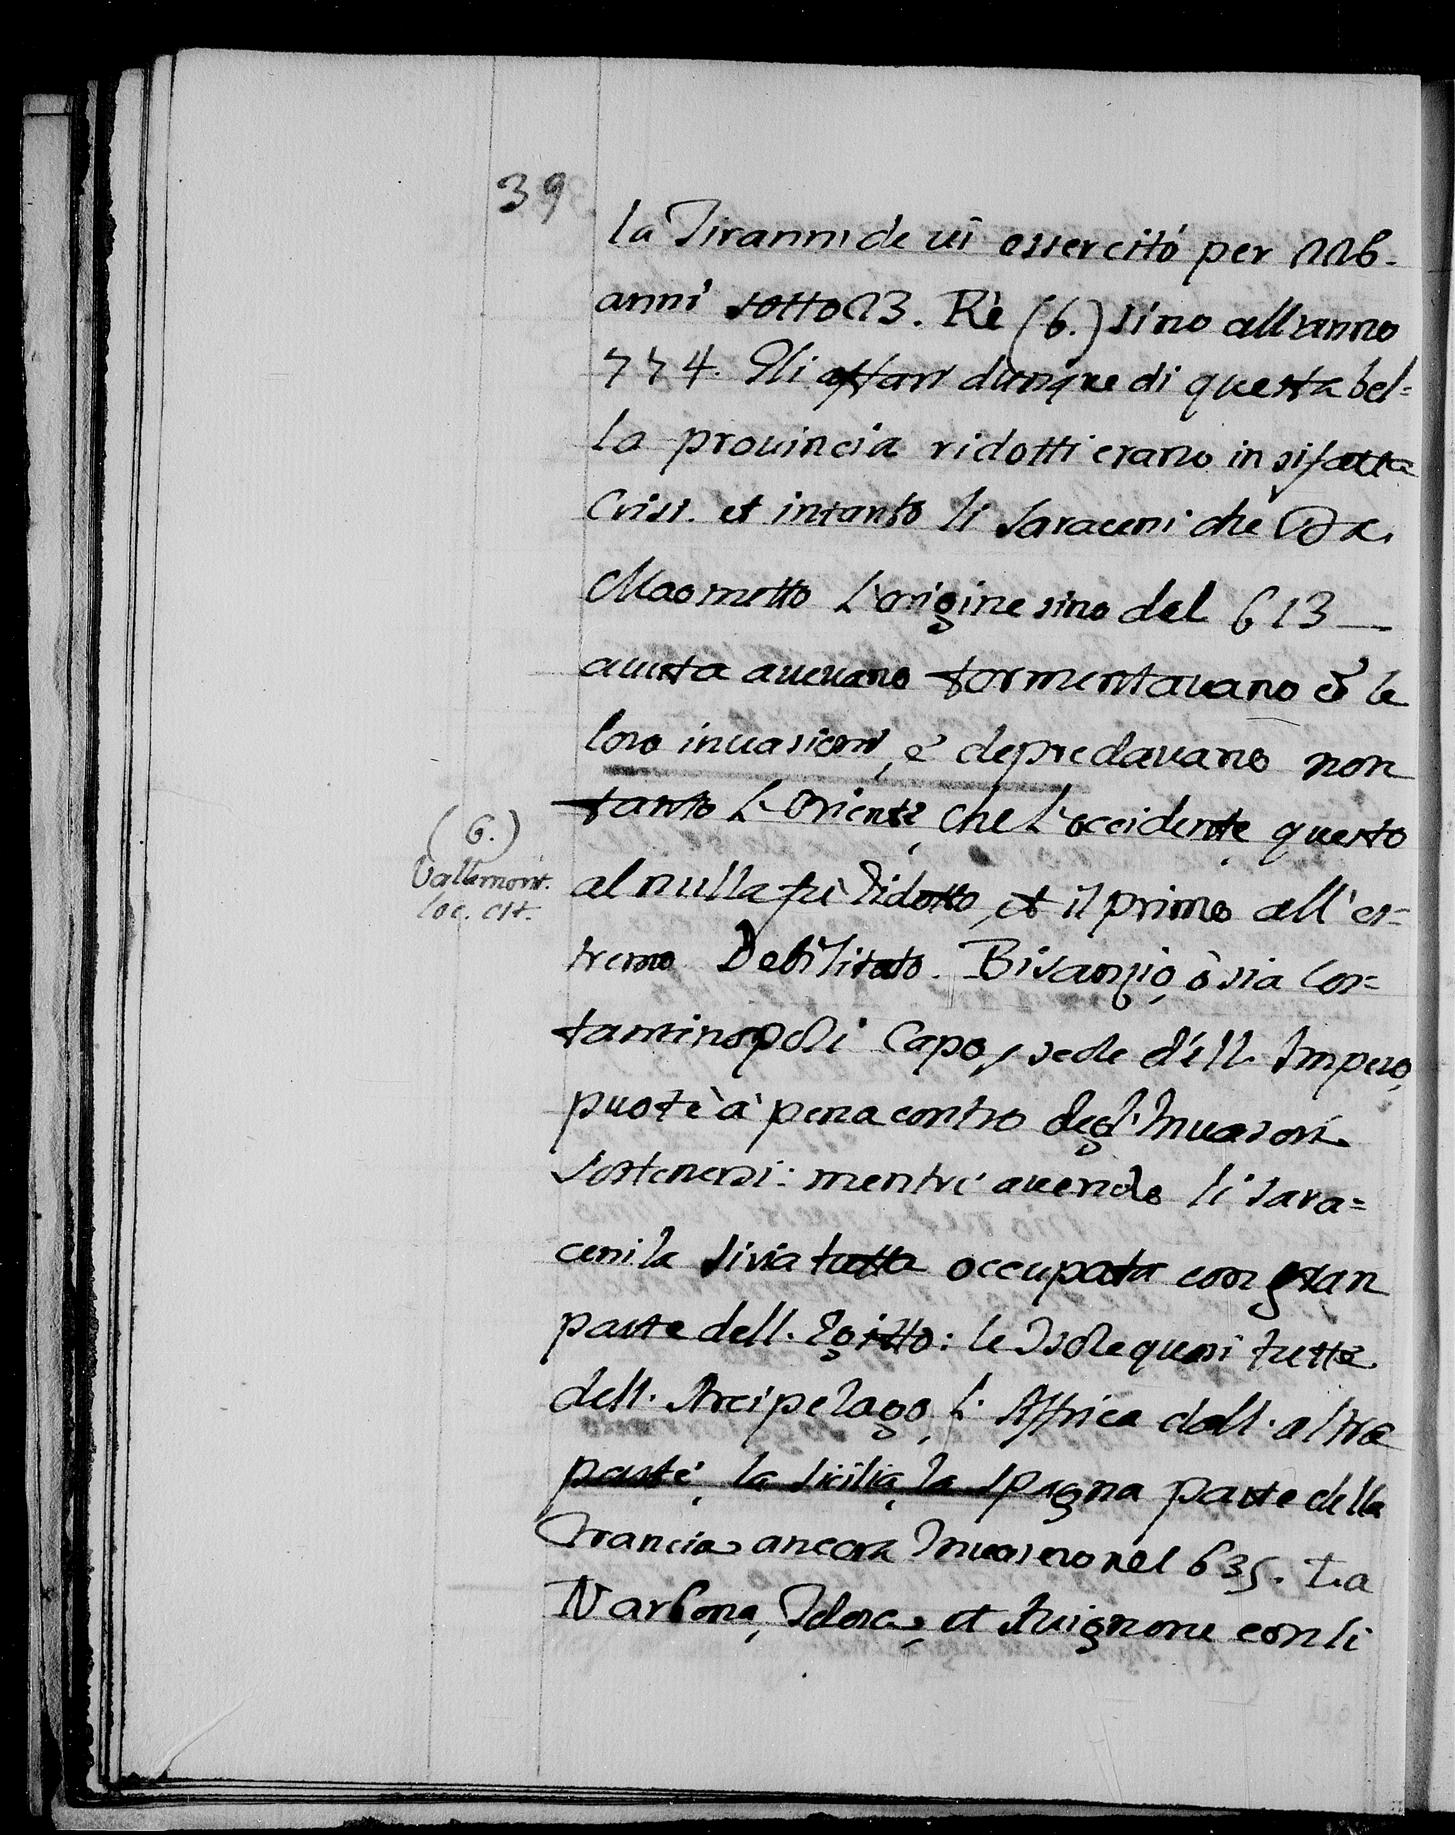 39
la Tirannide ui essercitó per 206.
anni sotto 23. Rè (6.) sino all'anno
774. Gli affari dunque di questa bel=
la prouincia ridotti erano in sifatta
Crisi. et intanto li Saraceni che Da
Maometto L'origine sino del 613 —
auuta aueuano tormentauano & le
loro inuasioni, e' depredauano non
tanto L'Oriente, che L'occidente, questo
al nulla fù ridotto, et il primo all'es=
tremo Debilitato. Bisanzio, ò sia Cos=
tantinopoli Capo, sede dell. Impero,
puotè à pena contro degl'Inuasori
Sostenersi: mentre auendo li Sara=
ceni la Siria tutta occupata con gran
parte dell. Egitto: le Isole quasi tutte
dell. Arcipelago, L. Affrica dall. altra
parte, la Sicilia, la Spagna parte della
Francia ancora Inuasero nel 635. La
Narbona, Tolosa, et Auignone con li
(6.)
Vallemont.
loc. cit.